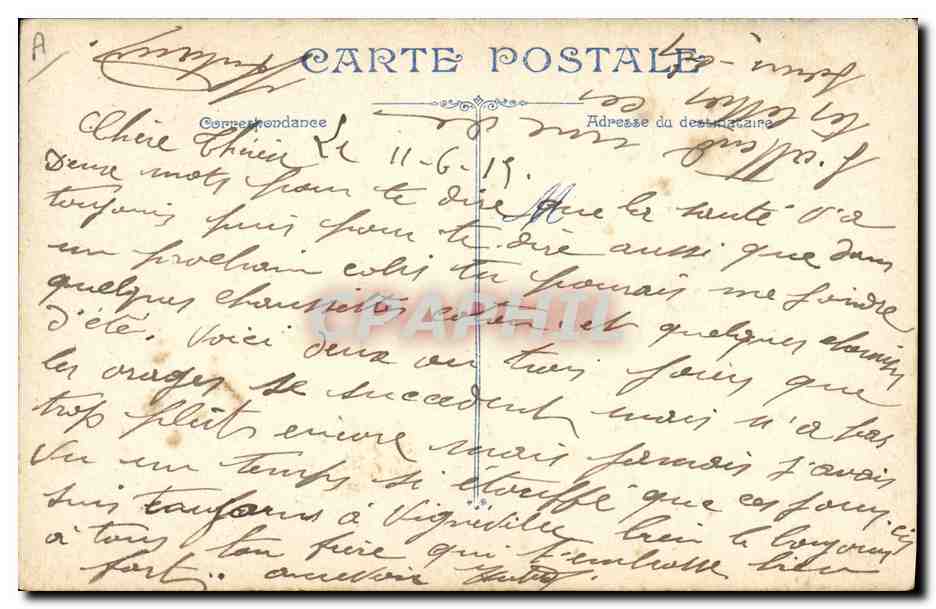 A
CARTE POSTALE
Correspondance
Adresse du destinataire
Chère Thérèse Le 11-6-15.
Deux mots pour te dire que la santé va
toujours puis pour te dire aussi que dans
un prochain colis tu pourrais me joindre
quelques chaussettes coton et quelques chemises
d'été. Voici deux ou trois jours que
les orages se succedent mais n'a pas
trop plut encore mais jamais j'avais
vu un temps si étouffé que ces jours ci
suis toujours à Vignéville bien le bonjour
à tous ton frère qui t'embrasse bien
fort.. au revoir
J'attend une de
tes lettres ces
jours-ci
CPAPHIL